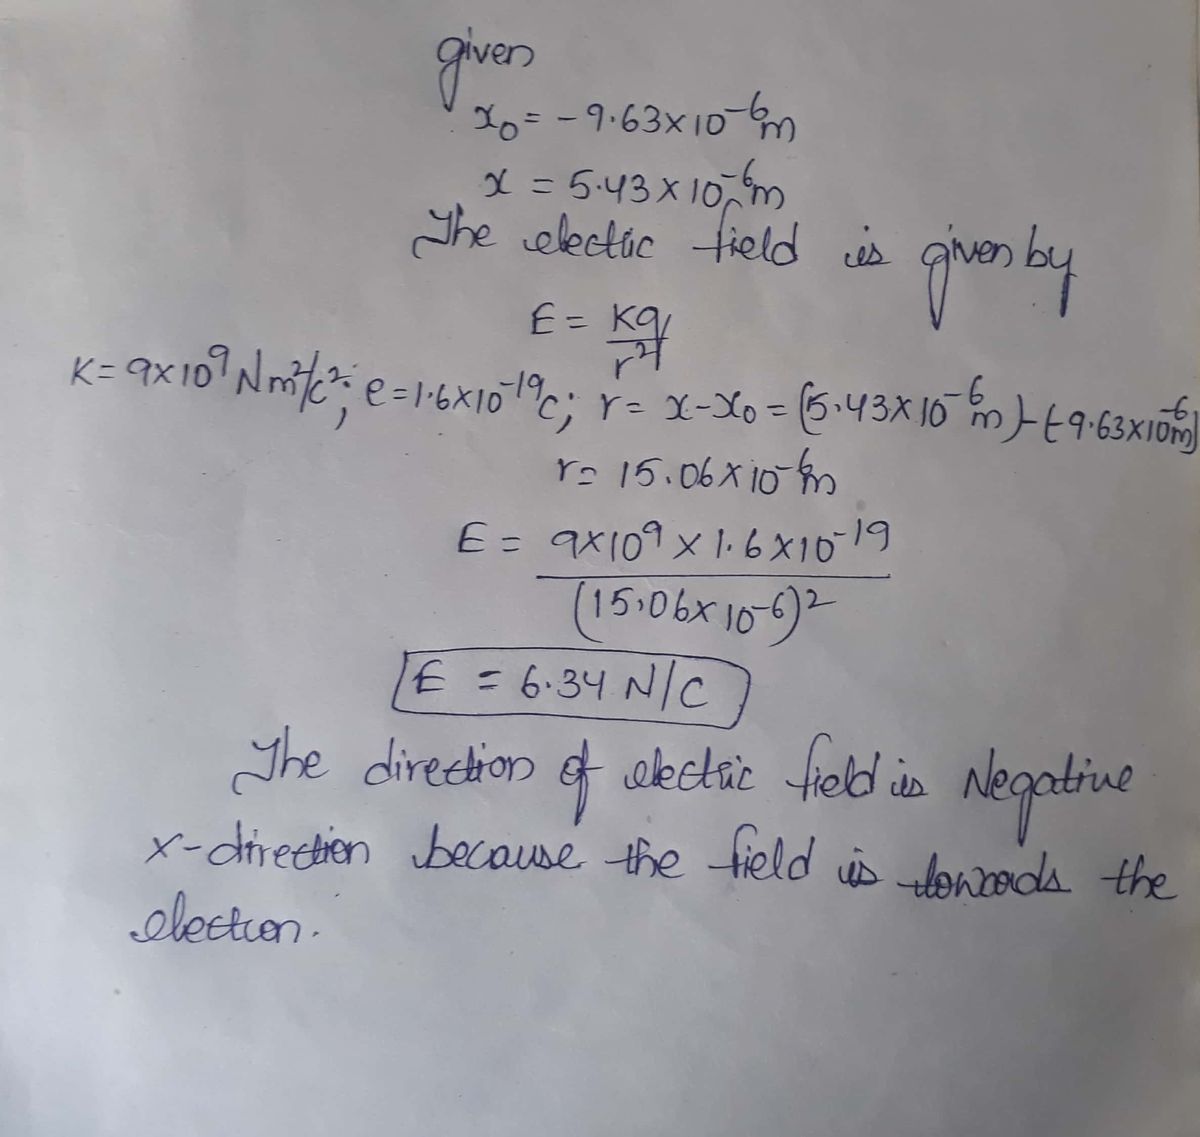 given
x₀ = -9.63×10⁻⁶m
x = 5.43×10⁻⁶m
The electric field is given by
E = Kq/r²
K = 9×10⁹ Nm²/c²; e = 1.6×10⁻¹⁹c; r = x-x₀ = (5.43×10⁻⁶m)-(-9.63×10⁻⁶m)
r = 15.06×10⁻⁶m
E = 9×10⁹ × 1.6×10⁻¹⁹
(15.06×10⁻⁶)²
E = 6.34 N/C
The direction of electric field is Negative
x-direction because the field is towards the
electron.